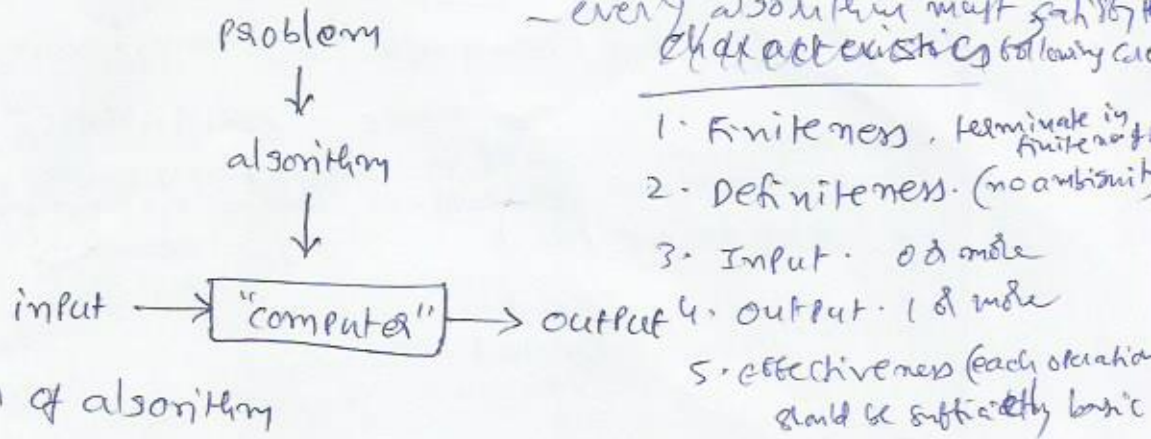 problem
algorithm
input
"computer"
output
of algorithm
- every algorithm must satisfy
characteristics following
1. Finiteness. terminate in
finite no of
2. Definiteness. (no ambiguity
3. Input. 0 or more
4. output. 1 or more
5. effectiveness (each operation
should be sufficiently basic